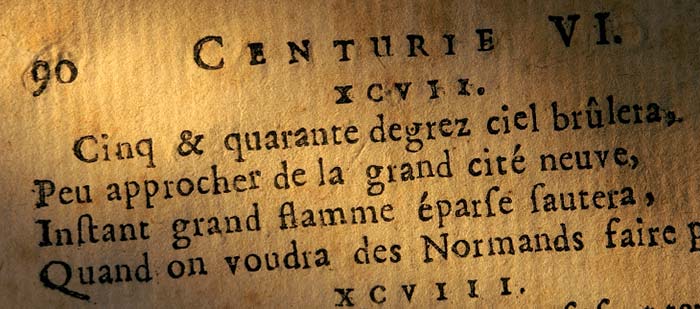 90 CENTURIE VI.
XCVII.
Cinq & quarante degrez ciel brûlera,
Peu approcher de la grand cité neuve,
Inſtant grand flamme éparſe ſautera,
Quand on voudra des Normands faire p
XCVIII.